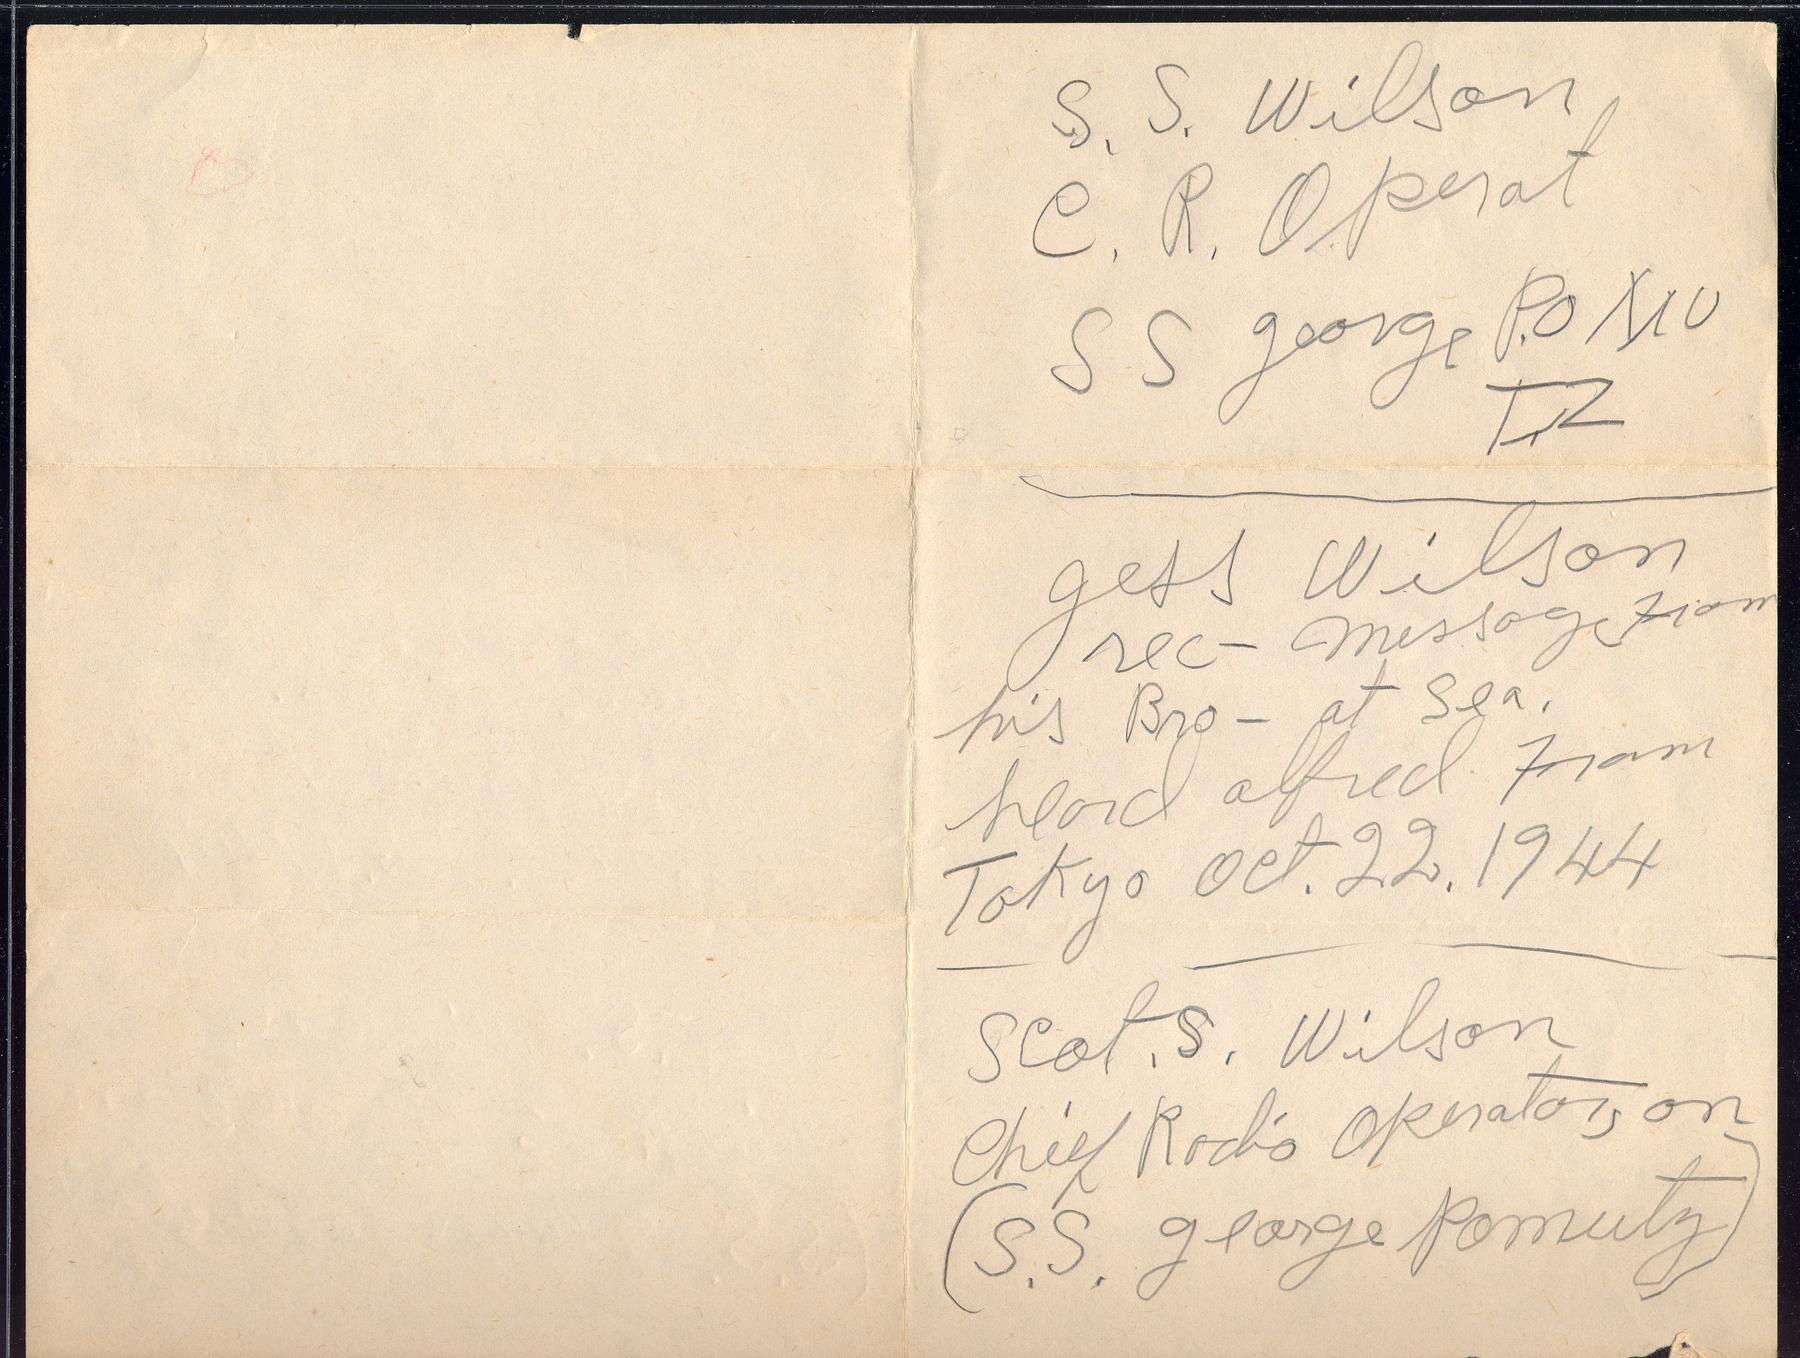 S. S. Wilson
C. R. Operat
S S george P.O
TZ
gess Wilson
rec- message from
his Bro- at Sea.
heard alfred from
Tokyo Oct. 22. 1944
Scot. S. Wilson
Chief Radio Operator, on
(S.S. george Pomutz)